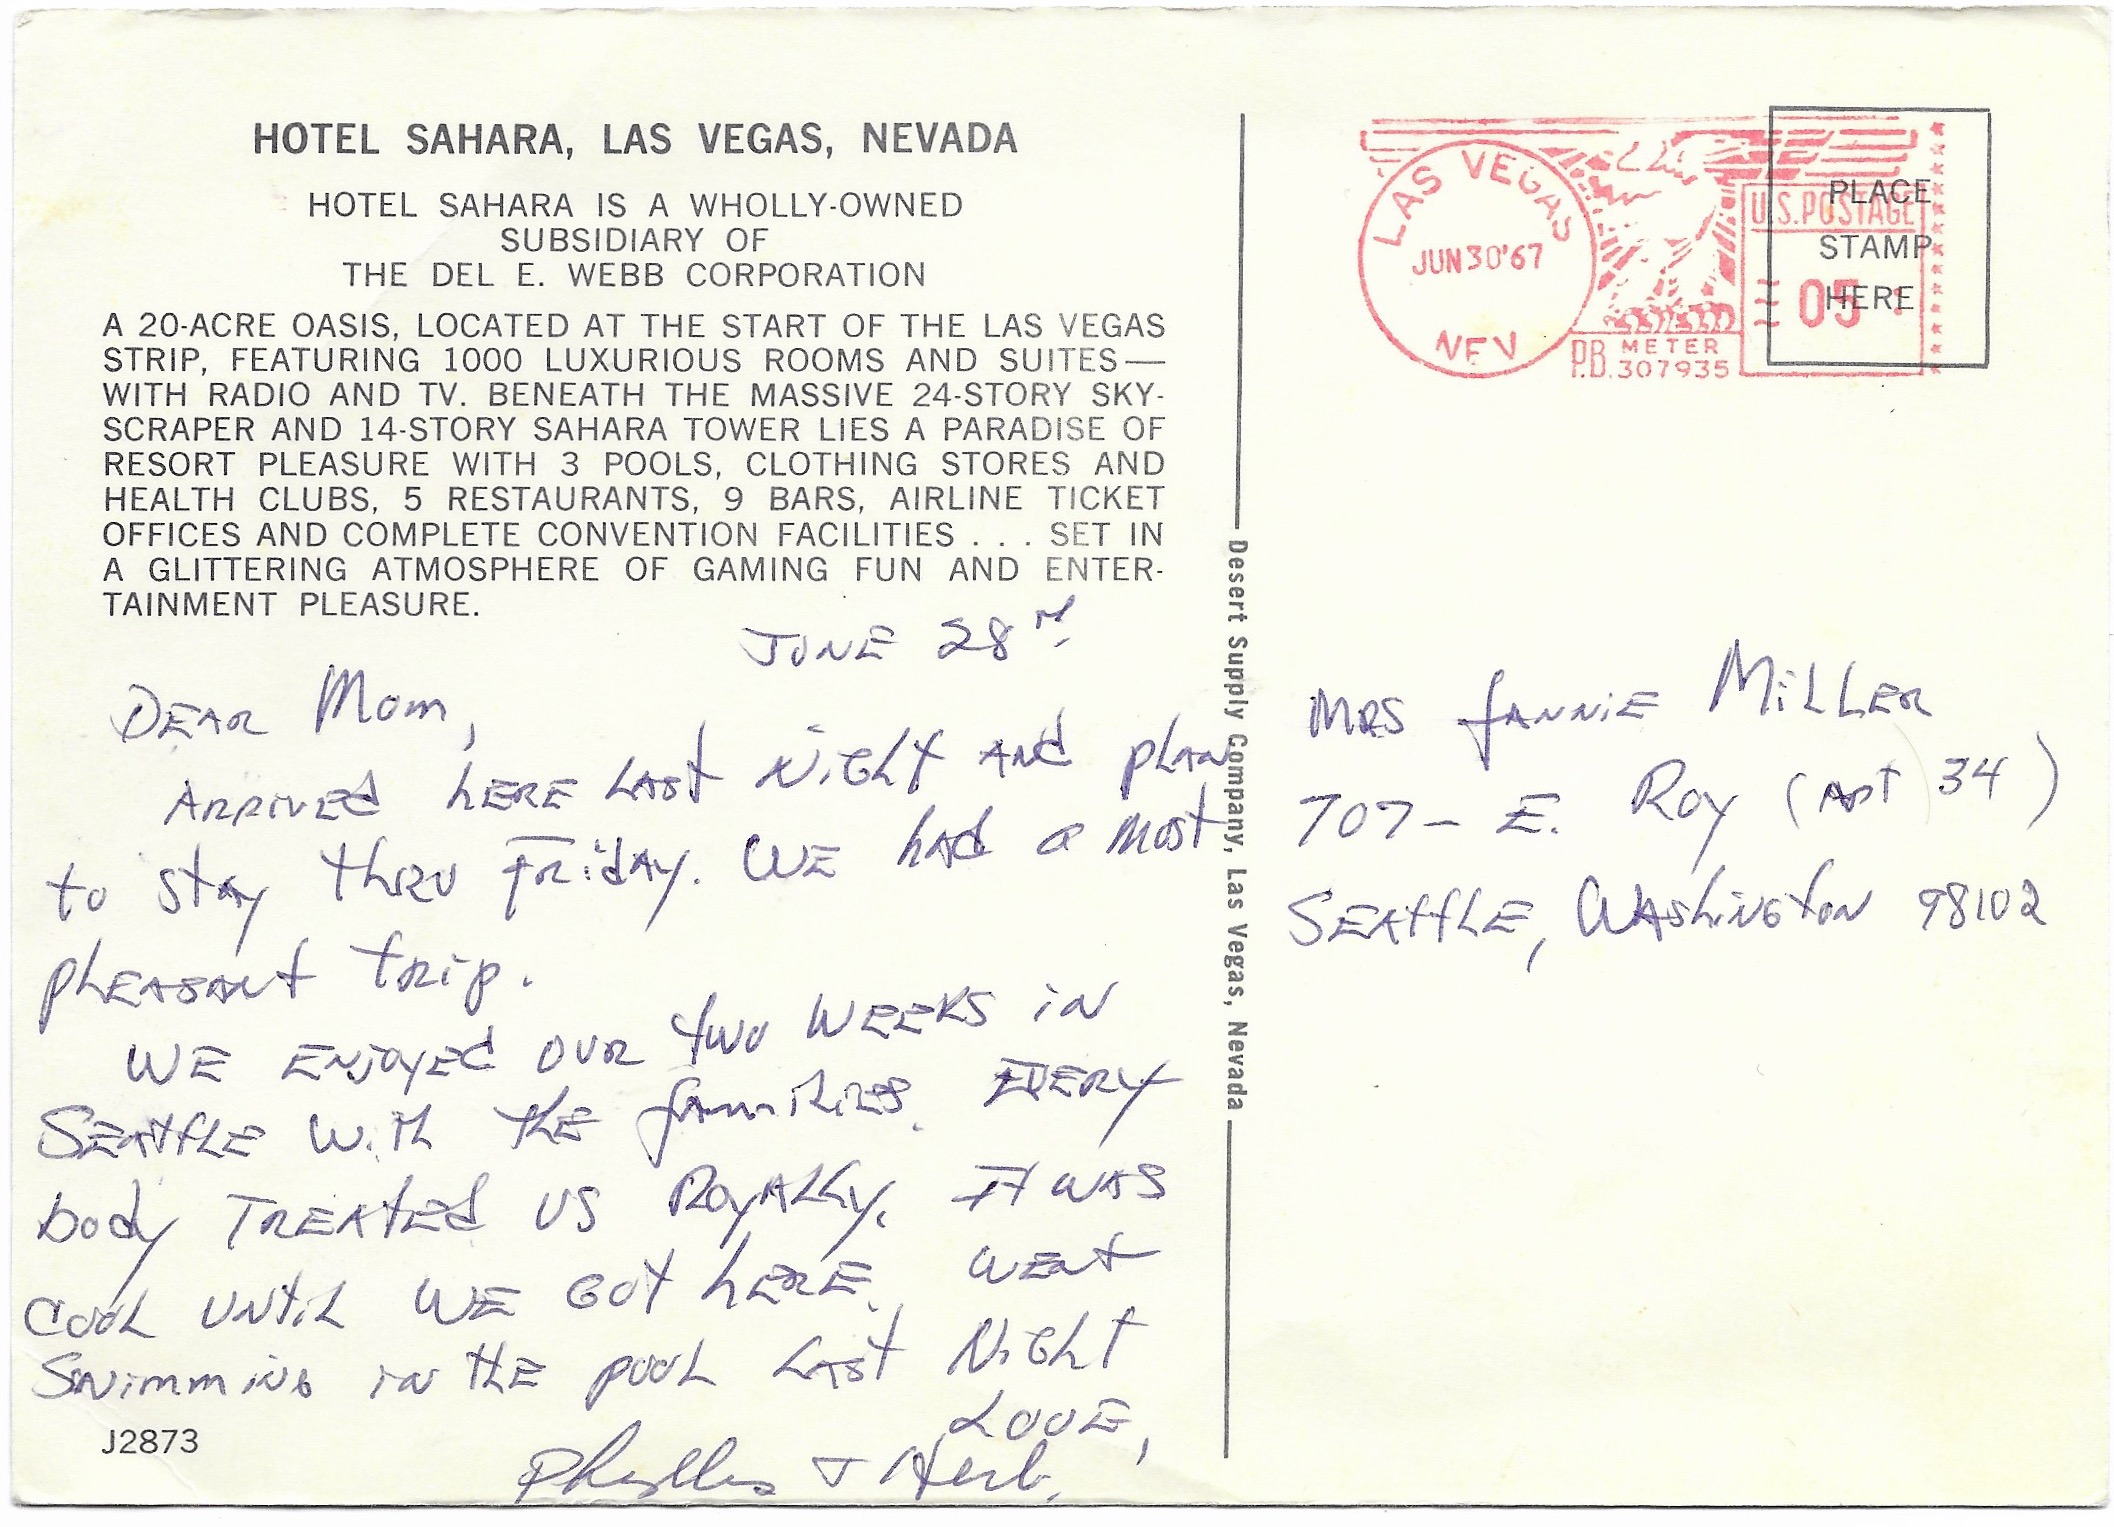 HOTEL SAHARA, LAS VEGAS, NEVADA
HOTEL SAHARA IS A WHOLLY-OWNED
SUBSIDIARY OF
THE DEL E. WEBB CORPORATION
A 20-ACRE OASIS, LOCATED AT THE START OF THE LAS VEGAS
STRIP, FEATURING 1000 LUXURIOUS ROOMS AND SUITES—
WITH RADIO AND TV. BENEATH THE MASSIVE 24-STORY SKY-
SCRAPER AND 14-STORY SAHARA TOWER LIES A PARADISE OF
RESORT PLEASURE WITH 3 POOLS, CLOTHING STORES AND
HEALTH CLUBS, 5 RESTAURANTS, 9 BARS, AIRLINE TICKET
OFFICES AND COMPLETE CONVENTION FACILITIES . . . SET IN
A GLITTERING ATMOSPHERE OF GAMING FUN AND ENTER-
TAINMENT PLEASURE.
JUNE 28
DEAR Mom,
ARRIVED HERE LAST NIGHT AND PLAN
to stay thru FRIDAY. WE had a most
pleasant trip.
WE ENJOYED OUR two WEEKS in
SEATTLE With the families. EVERY
body TREATED US ROYALLY. It was
cool until WE GOT HERE. Went
Swimming in the pool last Night
LOVE,
Phyllis + Herb.
J2873
Desert Supply Company, Las Vegas, Nevada
LAS VEGAS
JUN 30 '67
NEV
P.B. METER
307935
U.S. POSTAGE
05
PLACE
STAMP
HERE
MRS FANNIE MILLER
707- E. Roy (Apt 34)
SEATTLE, WASHINGTON 98102